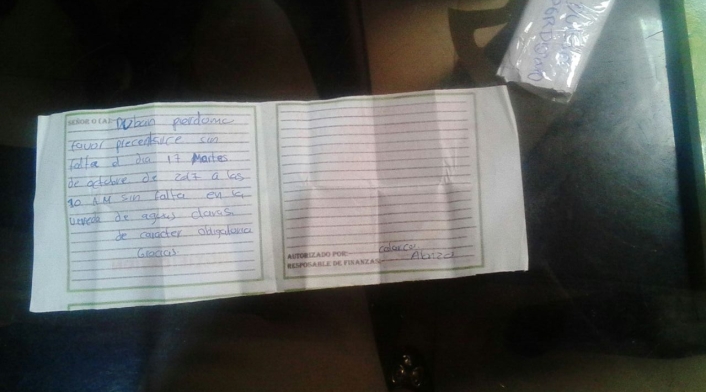 SEÑOR O (A): Duban perdomo
favor precentarce sin
falta el dia 17 Martes
de octubre de 2017 a las
10 AM sin falta en la
vereda de aguas claras
de caracter obligatoria
Gracias
AUTORIZADO POR:
RESPOSABLE DE FINANZAS:
PERDOMO